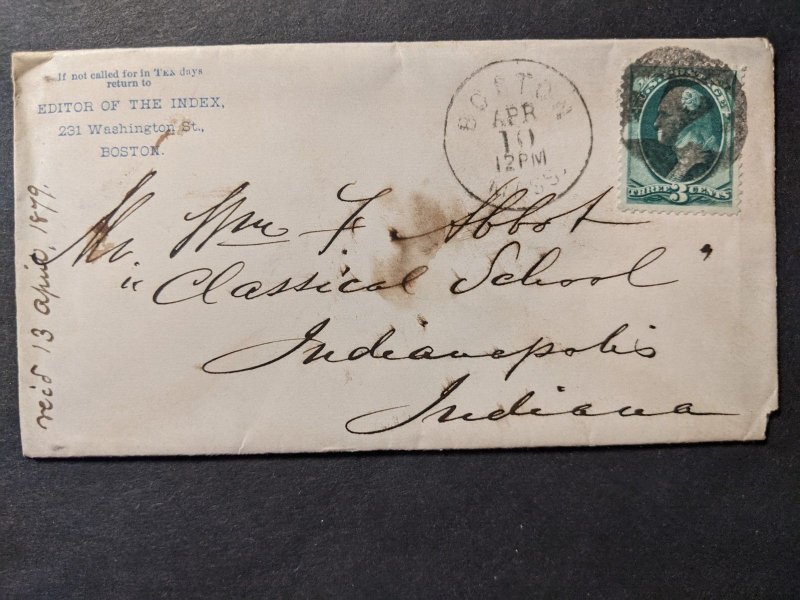 If not called for in TEN days
return to
EDITOR OF THE INDEX,
231 Washington St.,
BOSTON.
BOSTON
APR
10
12PM
MASS
THREE 3 CENTS
Mr. Wm F. Abbot
"Classical School"
Indianapolis
Indiana
rec'd 13 April, 1879.